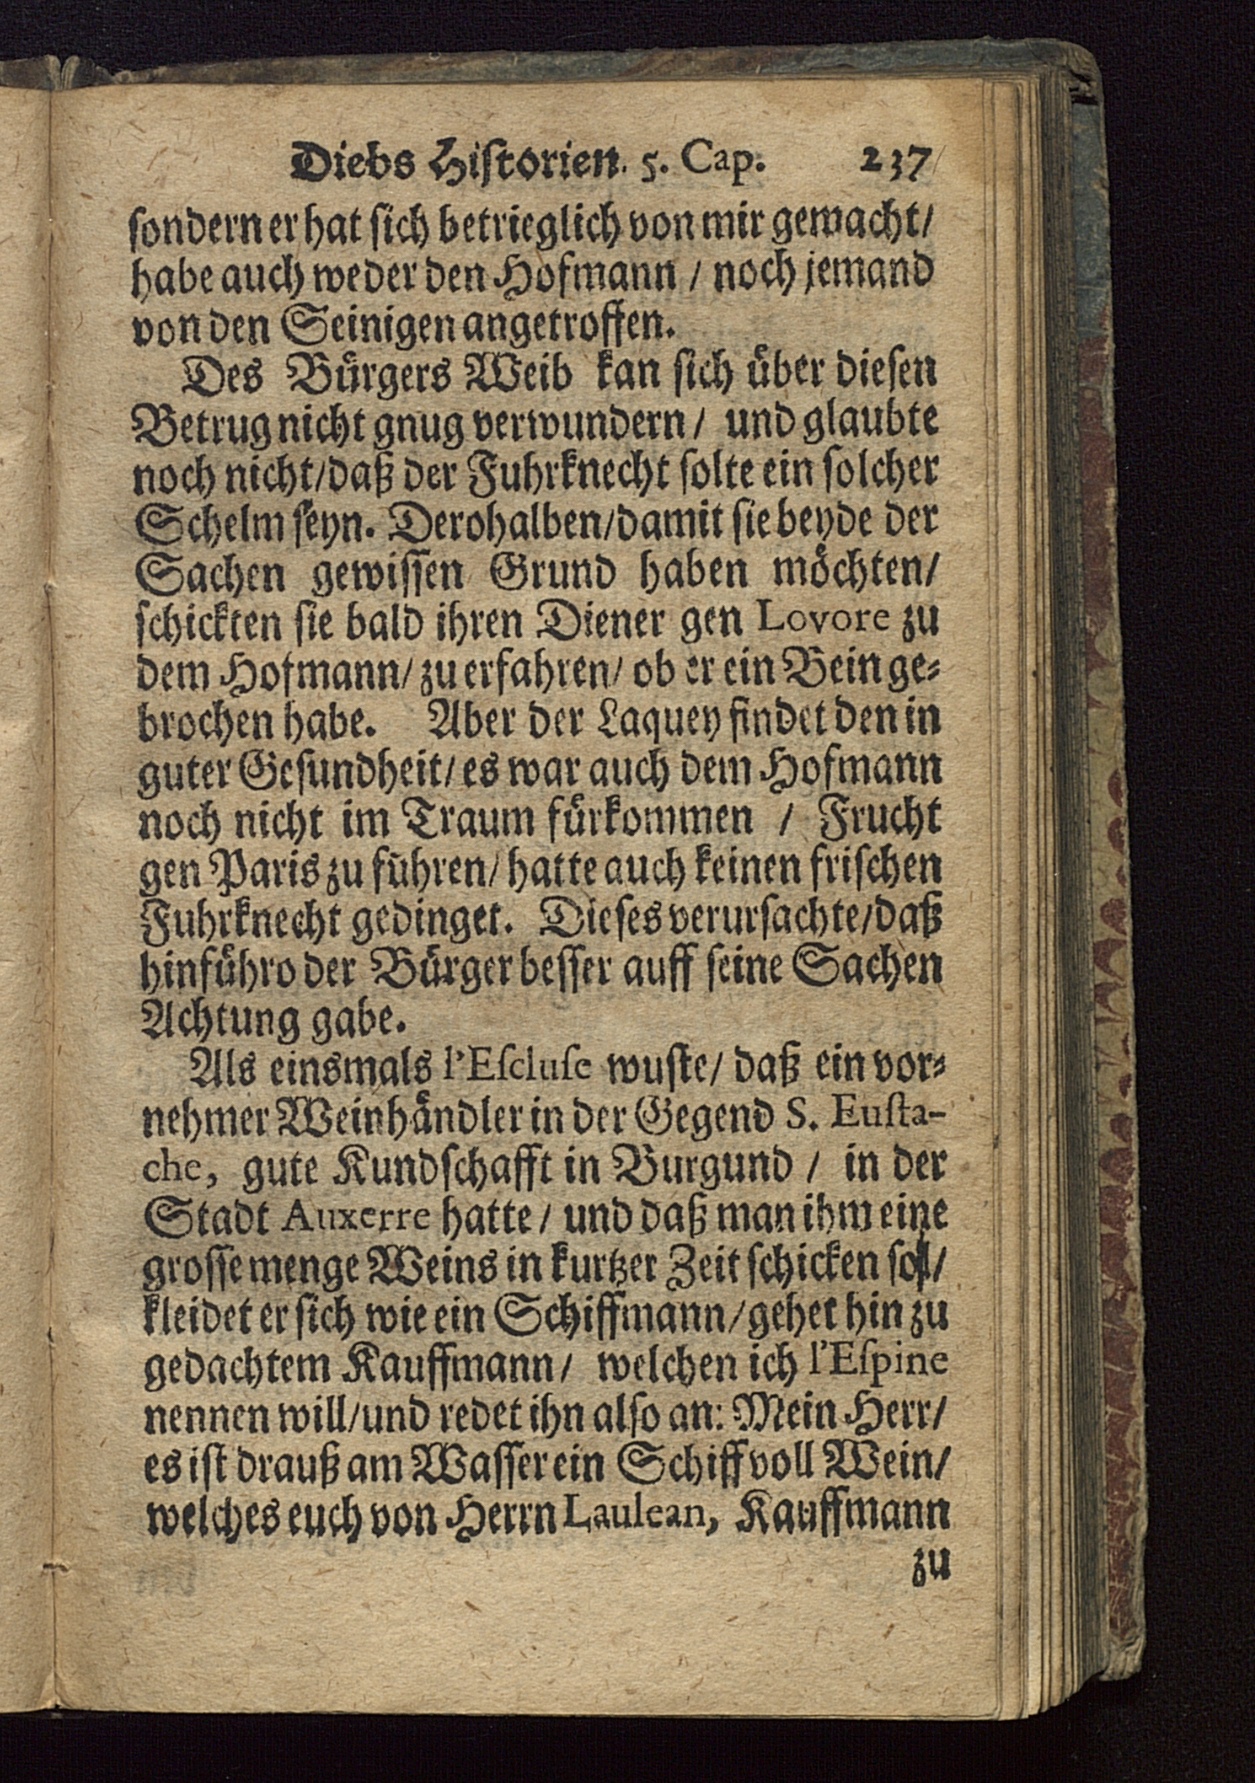 Diebs Hiſtorien. 5. Cap. 237
ſondern er hat ſich betrieglich von mir gewacht/
habe auch weder den Hofmann / noch jemand
von den Seinigen angetroffen.
Des Bürgers Weib kan ſich über dieſen
Betrug nicht gnug verwundern / und glaubte
noch nicht/daß der Fuhrknecht ſolte ein ſolcher
Schelm ſeyn. Derohalben/damit ſie beyde der
Sachen gewiſſen Grund haben möchten/
ſchickten ſie bald ihren Diener gen Lovore zu
dem Hofmann/ zu erfahren/ ob er ein Bein ge-
brochen habe. Aber der Laquey findet den in
guter Geſundheit/ es war auch dem Hofmann
noch nicht im Traum fürkommen / Frucht
gen Paris zu führen/ hatte auch keinen friſchen
Fuhrknecht gedinget. Dieſes verurſachte/daß
hinführo der Bürger beſſer auff ſeine Sachen
Achtung gabe.
Als einsmals l'Eſcluſe wuſte/ daß ein vor-
nehmer Weinhändler in der Gegend S. Euſta-
che, gute Kundſchafft in Burgund / in der
Stadt Auxerre hatte / und daß man ihm eine
groſſe menge Weins in kurtzer Zeit ſchicken ſoll/
kleidet er ſich wie ein Schiffmann/gehet hin zu
gedachtem Kauffmann/ welchen ich l'Eſpine
nennen will/und redet ihn alſo an: Mein Herr/
es iſt drauß am Waſſer ein Schiff voll Wein/
welches euch von Herrn Laulean, Kauffmann
zu